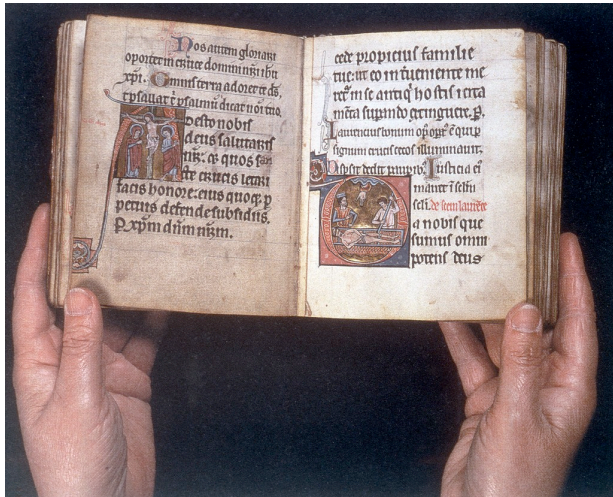 Nos autem gloriari
oportet in cruce domini nri ihu
xpi. Omnis terra adoret te ds.
et psallat t psalmū dicat noi tuo.
Adesto nobis
deus salutaris
nr. et quos
crucis letari
facis honore. eius quoq; p
petuis defende subsidiis.
P xpm dnm nrm.
cede propicius familie
tue. ut eo interueniente me
antiq hostis
Laurencius bonum op opat ē qui p
signum crucis cecos illuminauit.
Dispsit dedit paupib. Iusticia ei
manet ī sclm
scli. de scto laurēcio
Da nobis que
sumus omni
potens deus